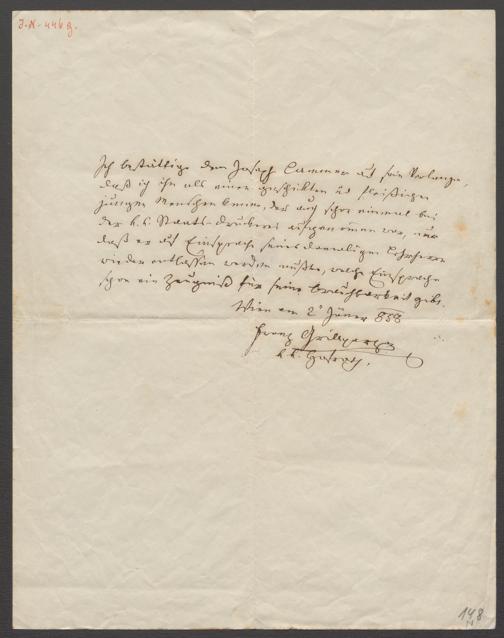 J.N. 446g.
Ich bestättige dem Joseph Cammer auf sein Verlangen,
daß ich ihn als einen geschikten und fleißigen
jungen Menschen kenne, der auch schon einmal bei
der k.k. Staats-Druckerei aufgenommen war, nur
daß er auf Einsprache seines damaligen Lehrherrn
wieder entlassen werden mußte, welche Einsprache
schon ein Zeugniß für seine Brauchbarkeit gibt.
Wien am 2' Jäner 858
Franz Grillparzer
k.k. Hofrath.
148